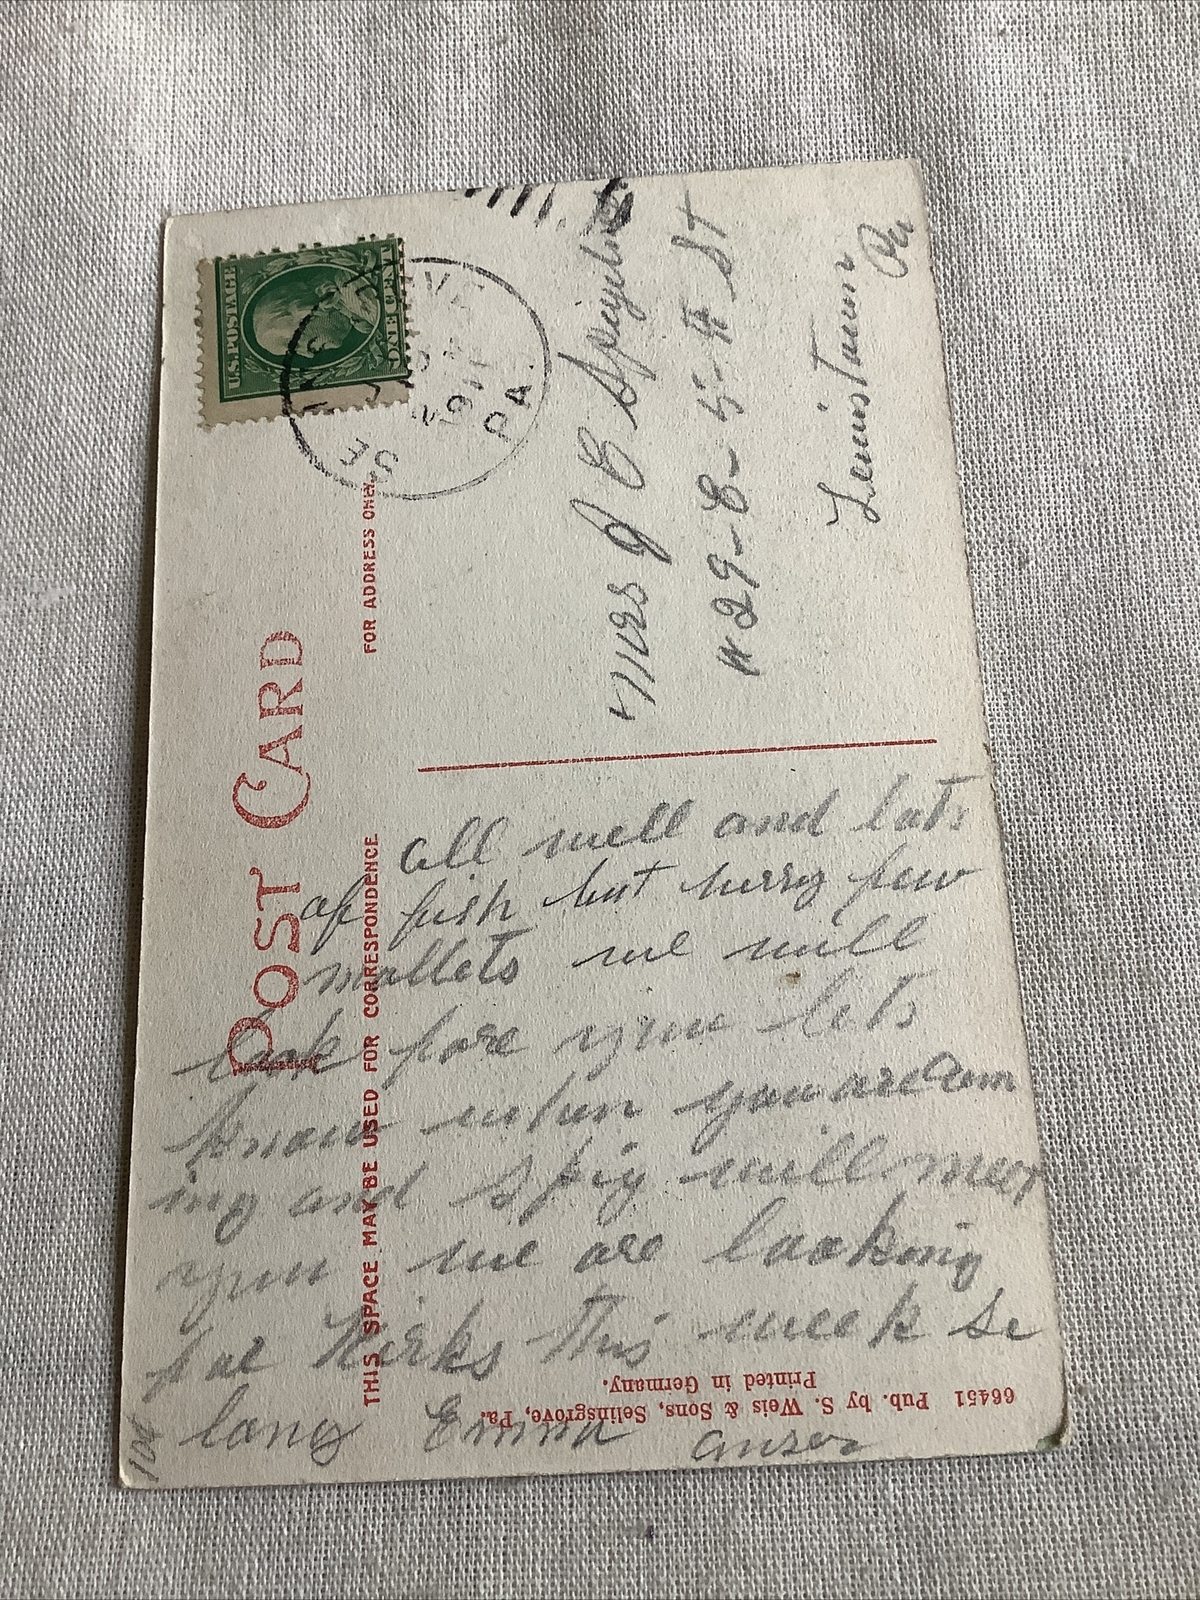 POST CARD
THIS SPACE MAY BE USED FOR CORRESPONDENCE
FOR ADDRESS ONLY.
U.S.POSTAGE
ONE CENT
1911
PA.
Mrs J E
# 29 - E - 5 - # ST
Lewistown
Pa
all well and lots
of fish but verry few
mallets we will
look fore you lets
know when you are Com
ing and Spig will meet
you we are looking
for Kirks This week So
long Emma anser
66451 Pub. by S. Weis & Sons, Selinsgrove, Pa.
Printed in Germany.